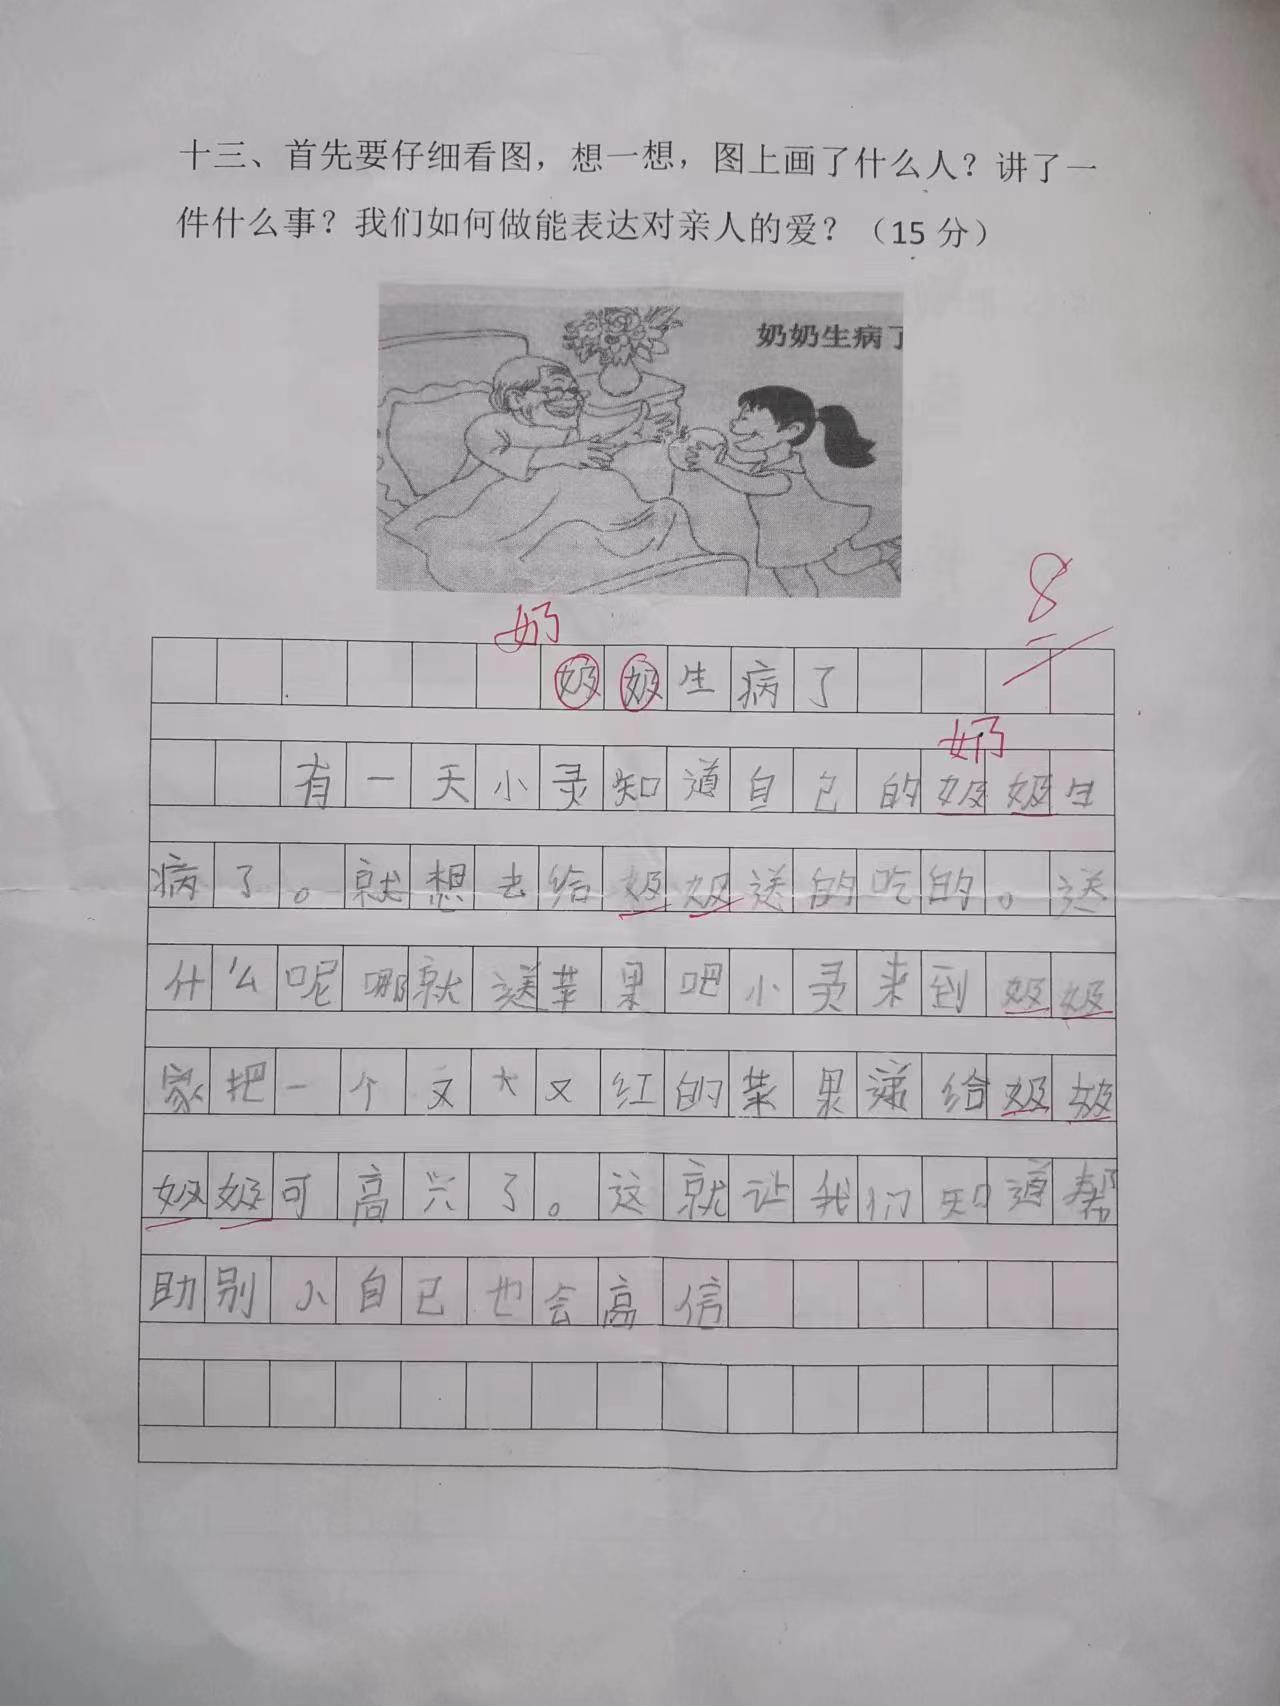 十三、首先要仔细看图，想一想，图上画了什么人？讲了一
件什么事？我们如何做能表达对亲人的爱？（15 分）
奶奶生病了
8
奶
奶奶生病了
奶
有一天小灵知道自己的奶奶生
病了。就想去给奶奶送的吃的。送
什么呢哪就送苹果吧小灵来到奶奶
家把一个又大又红的苹果递给奶奶
奶奶可高兴了。这就让我们知道帮
助别小自己也会高信